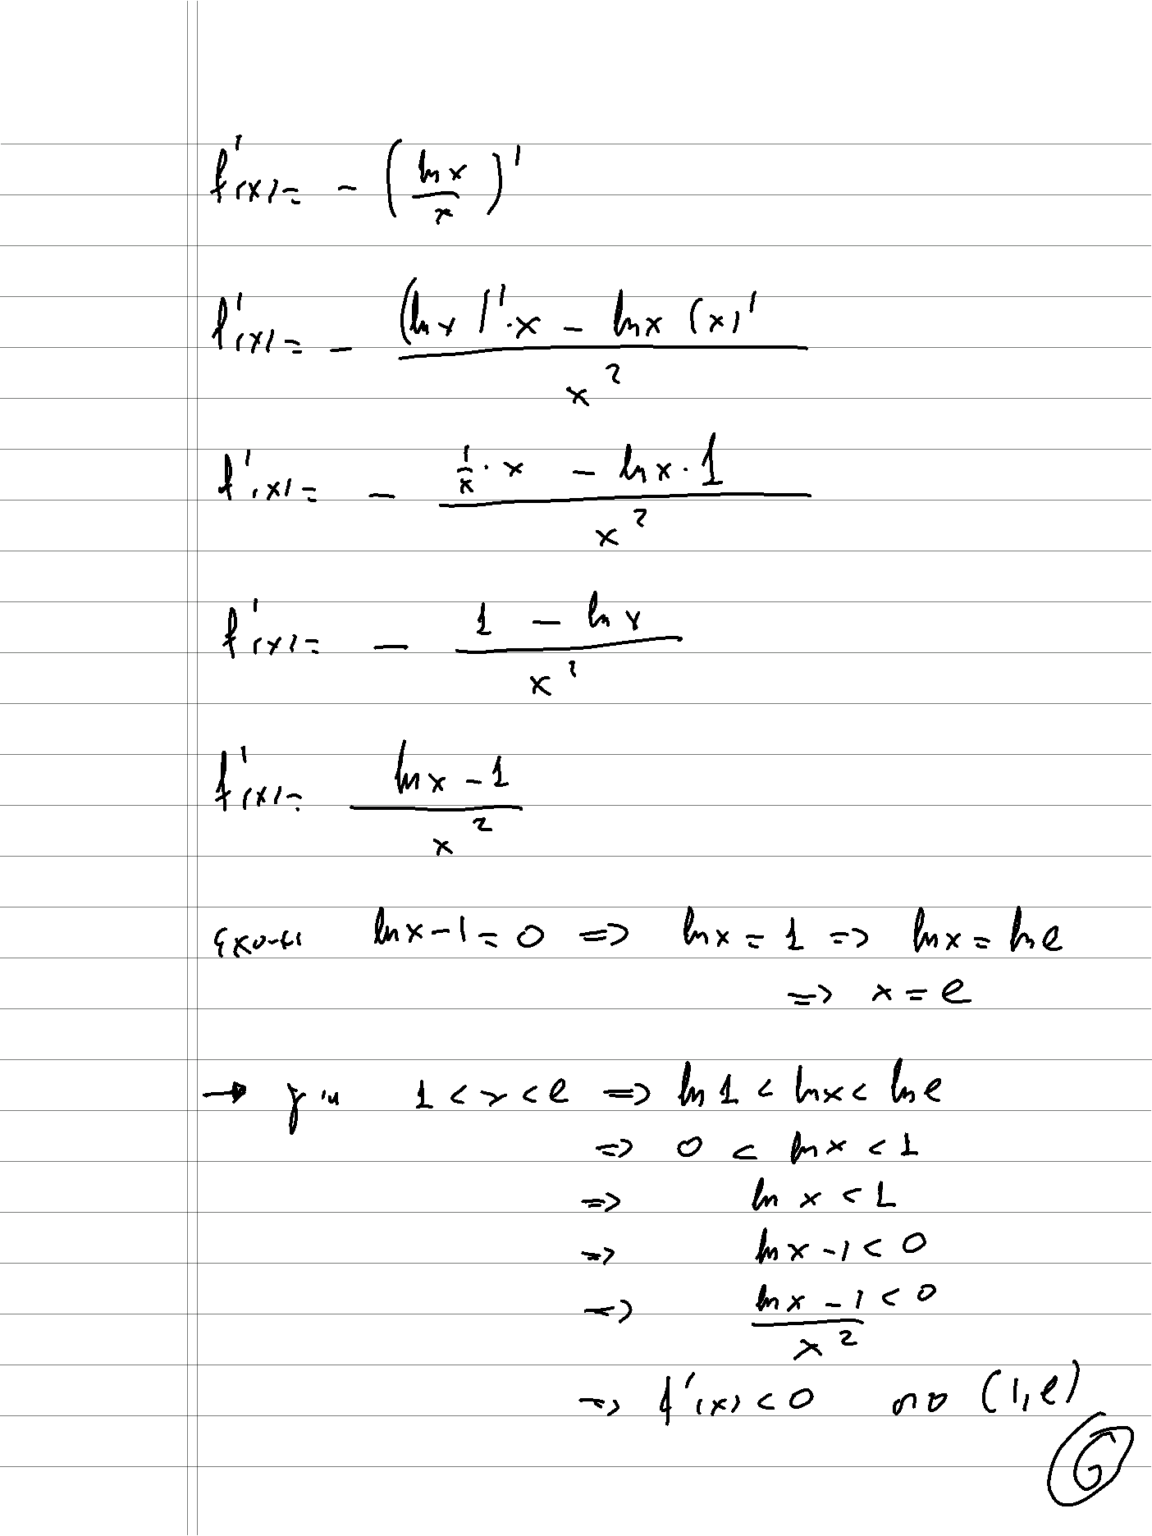 f'(x) = - (ln x / x)'
f'(x) = - ((ln x)' · x - ln x (x)') / x²
f'(x) = - (1/x · x - ln x · 1) / x²
f'(x) = - (1 - ln x) / x²
f'(x) = (ln x - 1) / x²
έχουμε ln x - 1 = 0 => ln x = 1 => ln x = ln e
=> x = e
→ για 1 < x < e => ln 1 < ln x < ln e
=> 0 < ln x < 1
=> ln x < 1
=> ln x - 1 < 0
=> (ln x - 1) / x² < 0
=> f'(x) < 0 στο (1, e)
6